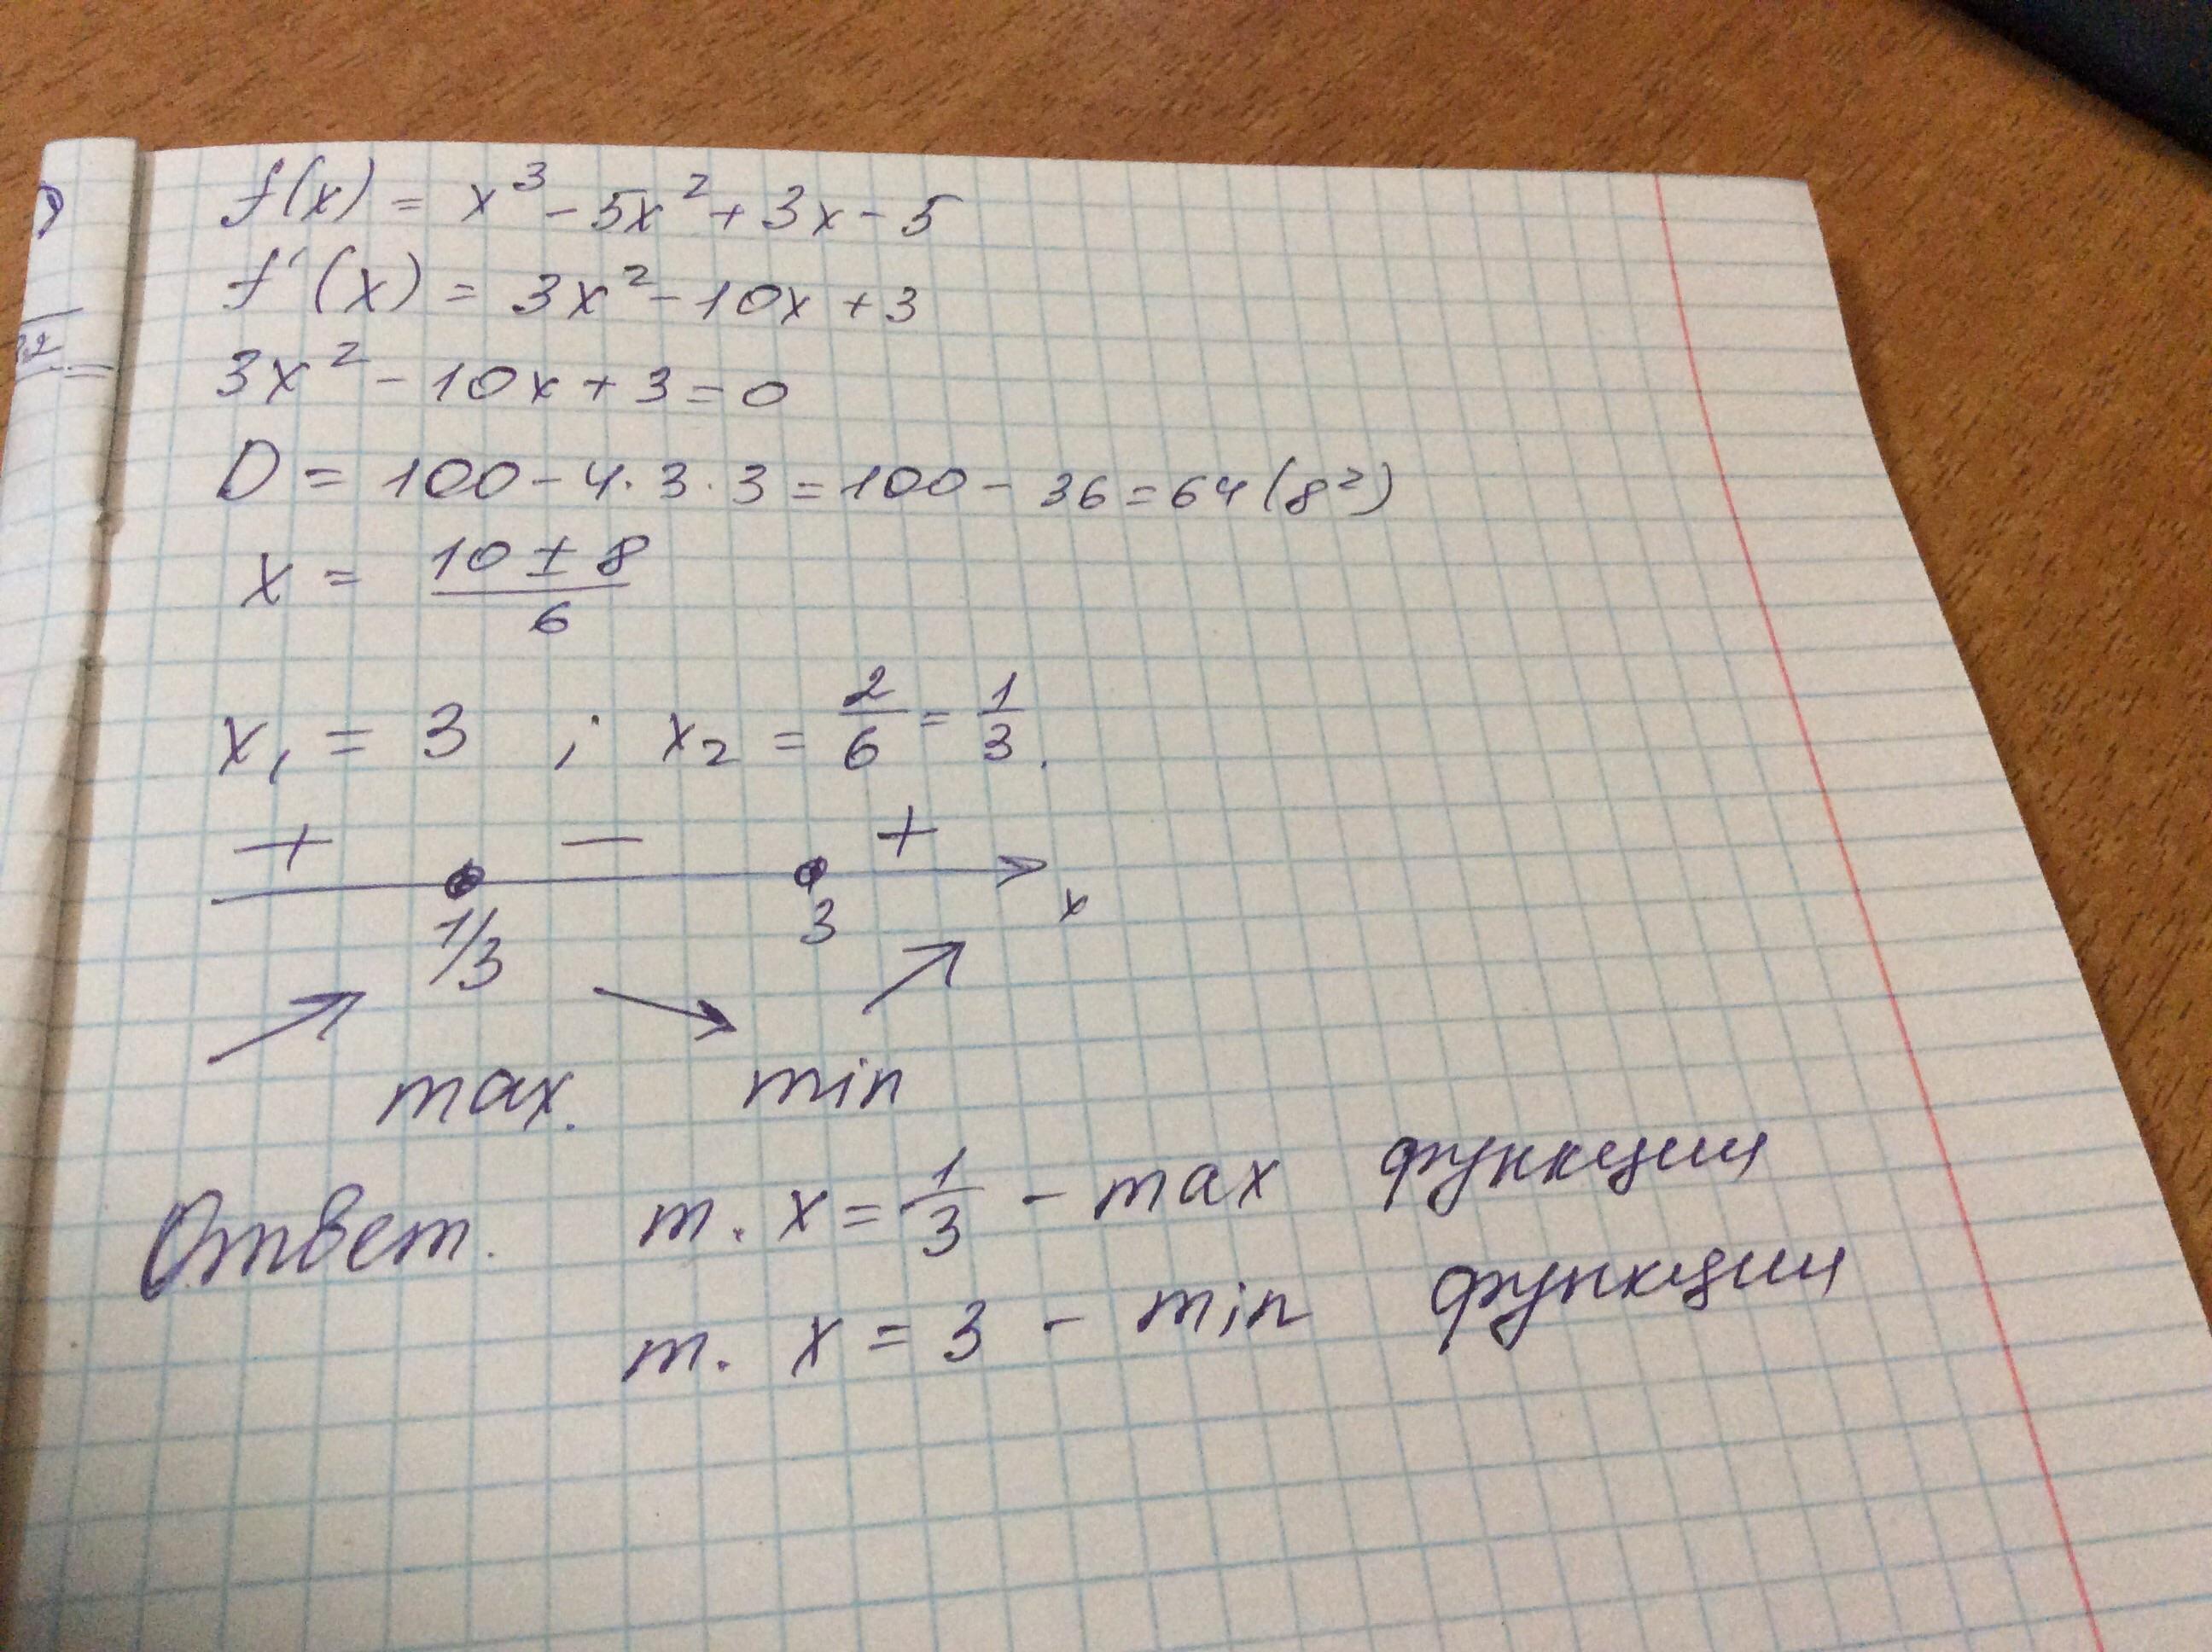 f(x) = x³ - 5x² + 3x - 5
f'(x) = 3x² - 10x + 3
3x² - 10x + 3 = 0
D = 100 - 4 · 3 · 3 = 100 - 36 = 64 (8²)
x = (10 ± 8)/6
x₁ = 3 ; x₂ = 2/6 = 1/3.
+ - +
1/3 3 x
max. min
Ответ. т. x = 1/3 - max функции
т. x = 3 - min функции